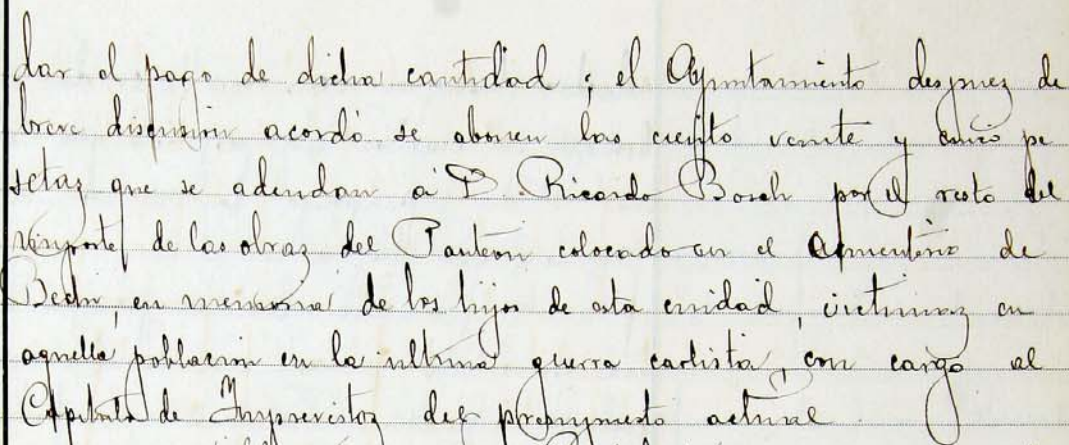 dar el pago de dicha cantidad; el Ayuntamiento despuez de
breve discusión acordó se abonen las ciento veinte y cinco pe
setaz que se adeudan á D. Ricardo Bosch por el resto del
importe de las obraz del Panteón colocado en el Cementerio de
Bechi, en memoria de los hijos de esta ciudad, victimaz en
aquella población en la ultima guerra carlista, con cargo al
Capitulo de Imprevistoz del presupuesto actual.